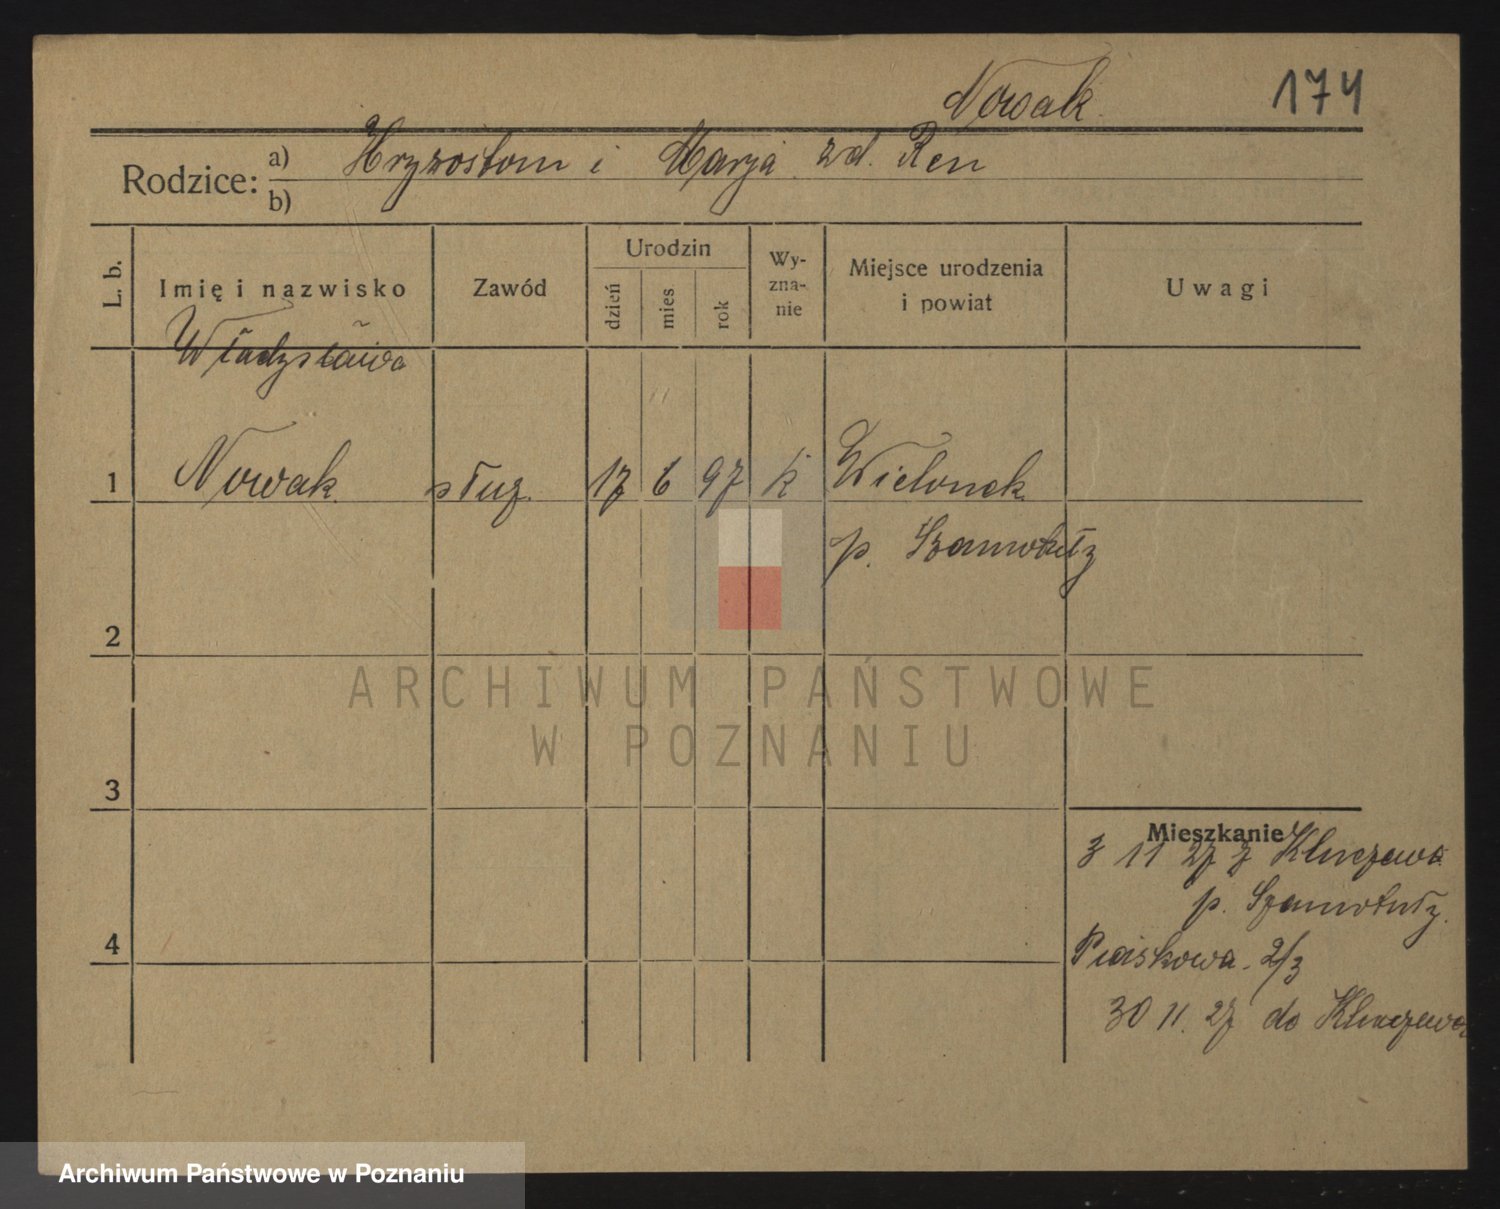 Nowak 174
Rodzice: a) Hryzostom i Marja zd. Ren
b)
L. b. Imię i nazwisko Zawód Urodzin dzień mies rok Wyznanie Miejsce urodzenia i powiat Uwagi
Władysława
1 Nowak służ. 17 6 97 k Wielonek
p. Szamotuły
2
3
Mieszkanie
3 11 27 z Kluczewa
p. Szamotuły.
4 Piaskowa 2/3
30 11. 27 do Kluczewa
ARCHIWUM PAŃSTWOWE
W POZNANIU
Archiwum Państwowe w Poznaniu